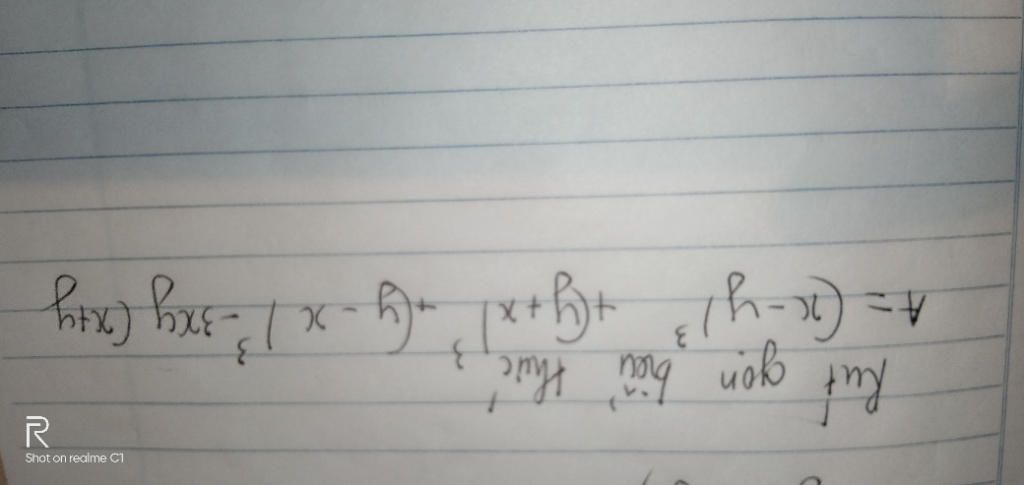 Rút gọn biểu thức
A = (x - y)³ + (y + x)³ + (y - x)³ - 3xy(x+y
Shot on realme C1